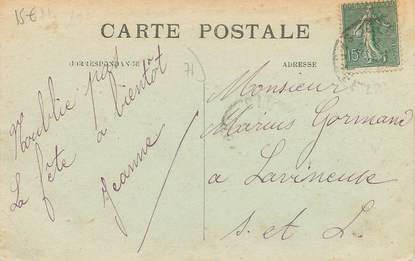 15€
CARTE POSTALE
CORRESPONDANCE
ADRESSE
71
N'oublie pas
La fête à bientôt
Jeanne
Monsieur
Marius Gormand
à Lavineuse
S. et L.
15c